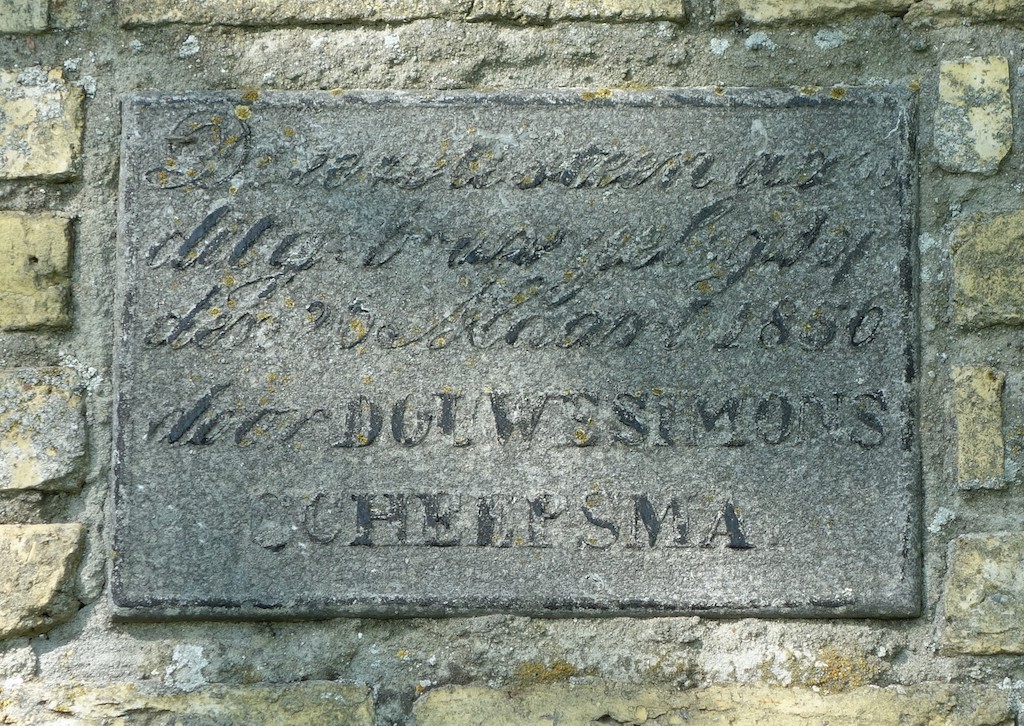 De eerste steen aan
dit gebouw gelegd
den 25 Maart 1850
door DOUWE SIMONS
SCHEEPSMA